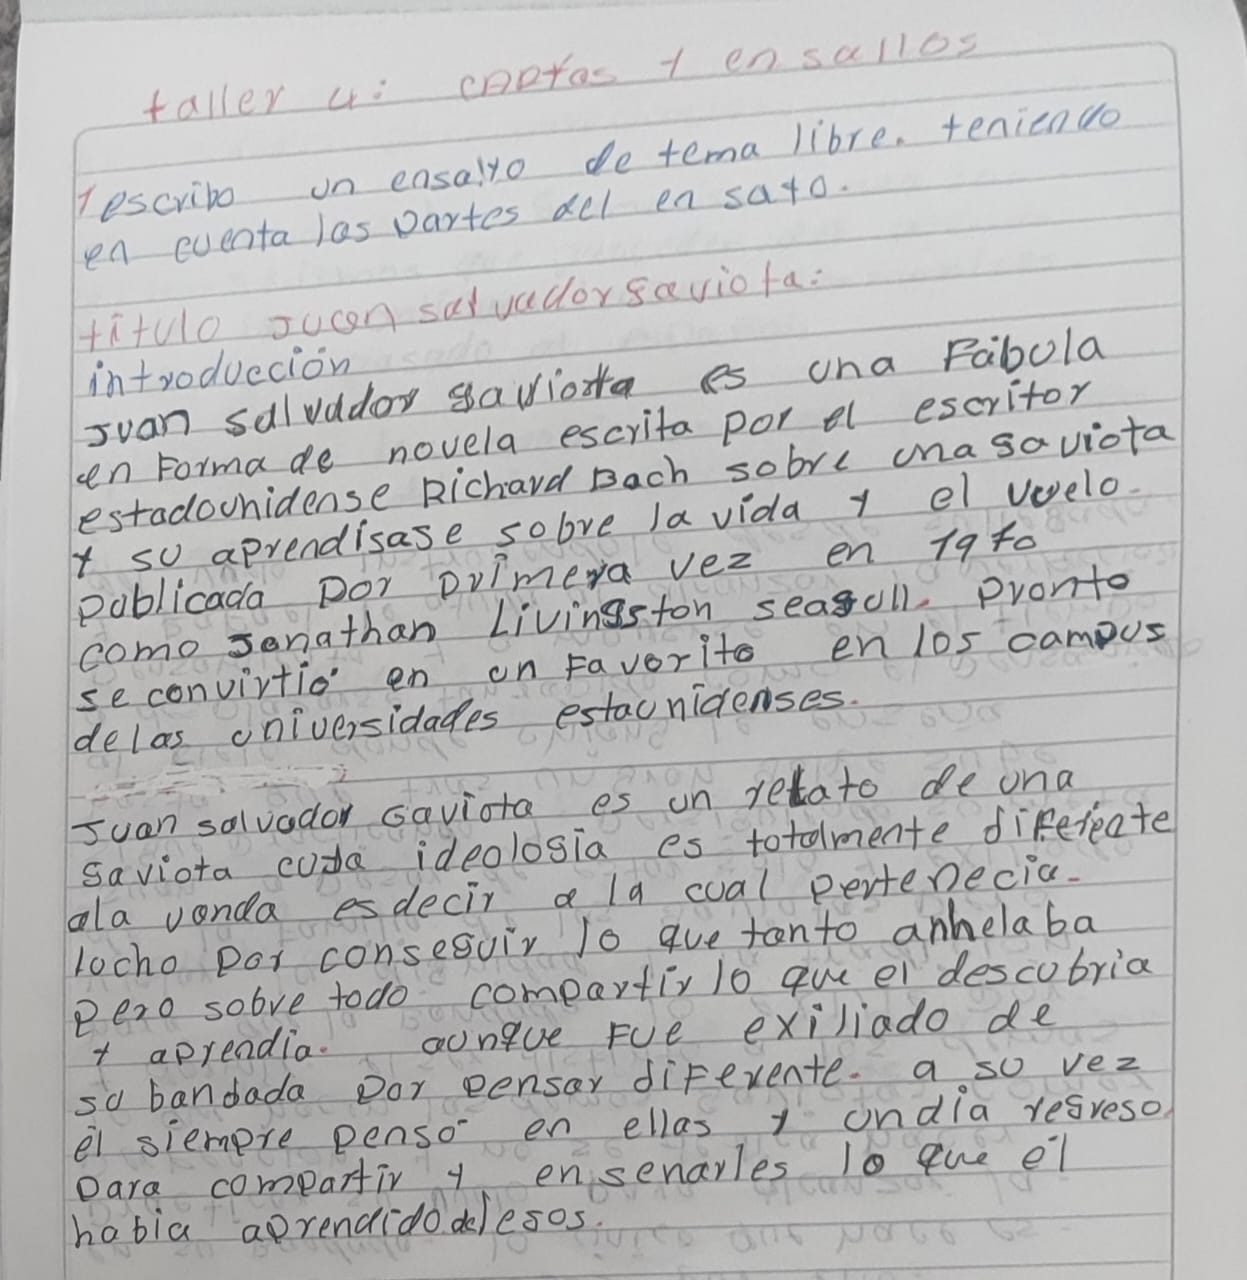 taller 4: cartas y ensallos
1 escribo un ensallo de tema libre. teniendo
en cuenta las partes del en sayo.
título Juan salvador gaviota:
introducción
Juan salvador gaviota es una Fábula
en Forma de novela escrita por el escritor
estadounidense Richard Bach sobre una gaviota
y su aprendisage sobre la vida y el vuelo.
publicada por primera vez en 1970
como Jonathan Livingston seagull. pronto
se convirtió en un Favorito en los campus
delas universidades estaunidenses.
Juan salvador Gaviota es un relato de una
gaviota cuya ideologia es totalmente diferente
ala vanda es decir a la cual pertenecia.
lucho por conseguir lo que tanto anhelaba
pero sobre todo compartir lo que el descubria
y aprendia. aunque Fue exiliado de
su bandada por pensar diFerente. a su vez
él siempre pensó en ellas y undía regreso
para compartir y ensenarles lo que él
habia aprendido de lesos.